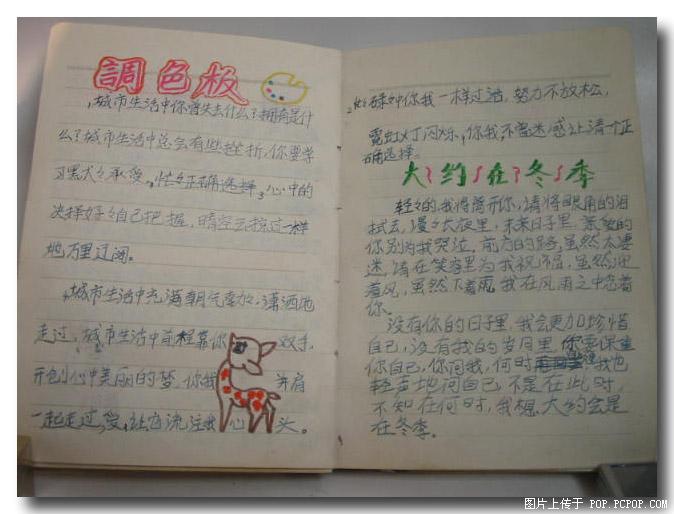 調色板
城市生活中你曾失去什么?拥有是什
么?城市生活中总会有些挫折,你要学
习默默承受,忙忙正确选择,心中的
决择好好自己把握,晴空云掠过一样
地万里辽阔。
城市生活中充满朝气
潇洒地
走过,城市生活中前程靠你 双手
开创心中美丽的梦,你我 并肩
一起走过,爱,让它流注我 心 头。
碌中你我一样过活,努力不放松,
霓虹灯闪烁,你我不曾迷惑让清
正
确选择。
大约在冬季
轻々的我将离开你,请将眼角的泪
拭去,漫々长夜里,未来日子里,亲爱的
你别为我哭泣,前方的路虽然太凄
迷,请在笑容里为我祝福,虽然迎
着风,虽然下着雨,我在风雨之中念着
你。
没有你的日子里,我会更加珍惜
自己,没有我的岁月里,你要保重
你自己,你问我,何时 我也
轻声地问自己,不是在此时,
不知在何时,我想,大约会是
在冬季。
图片上传于 POP.PCPOP.COM